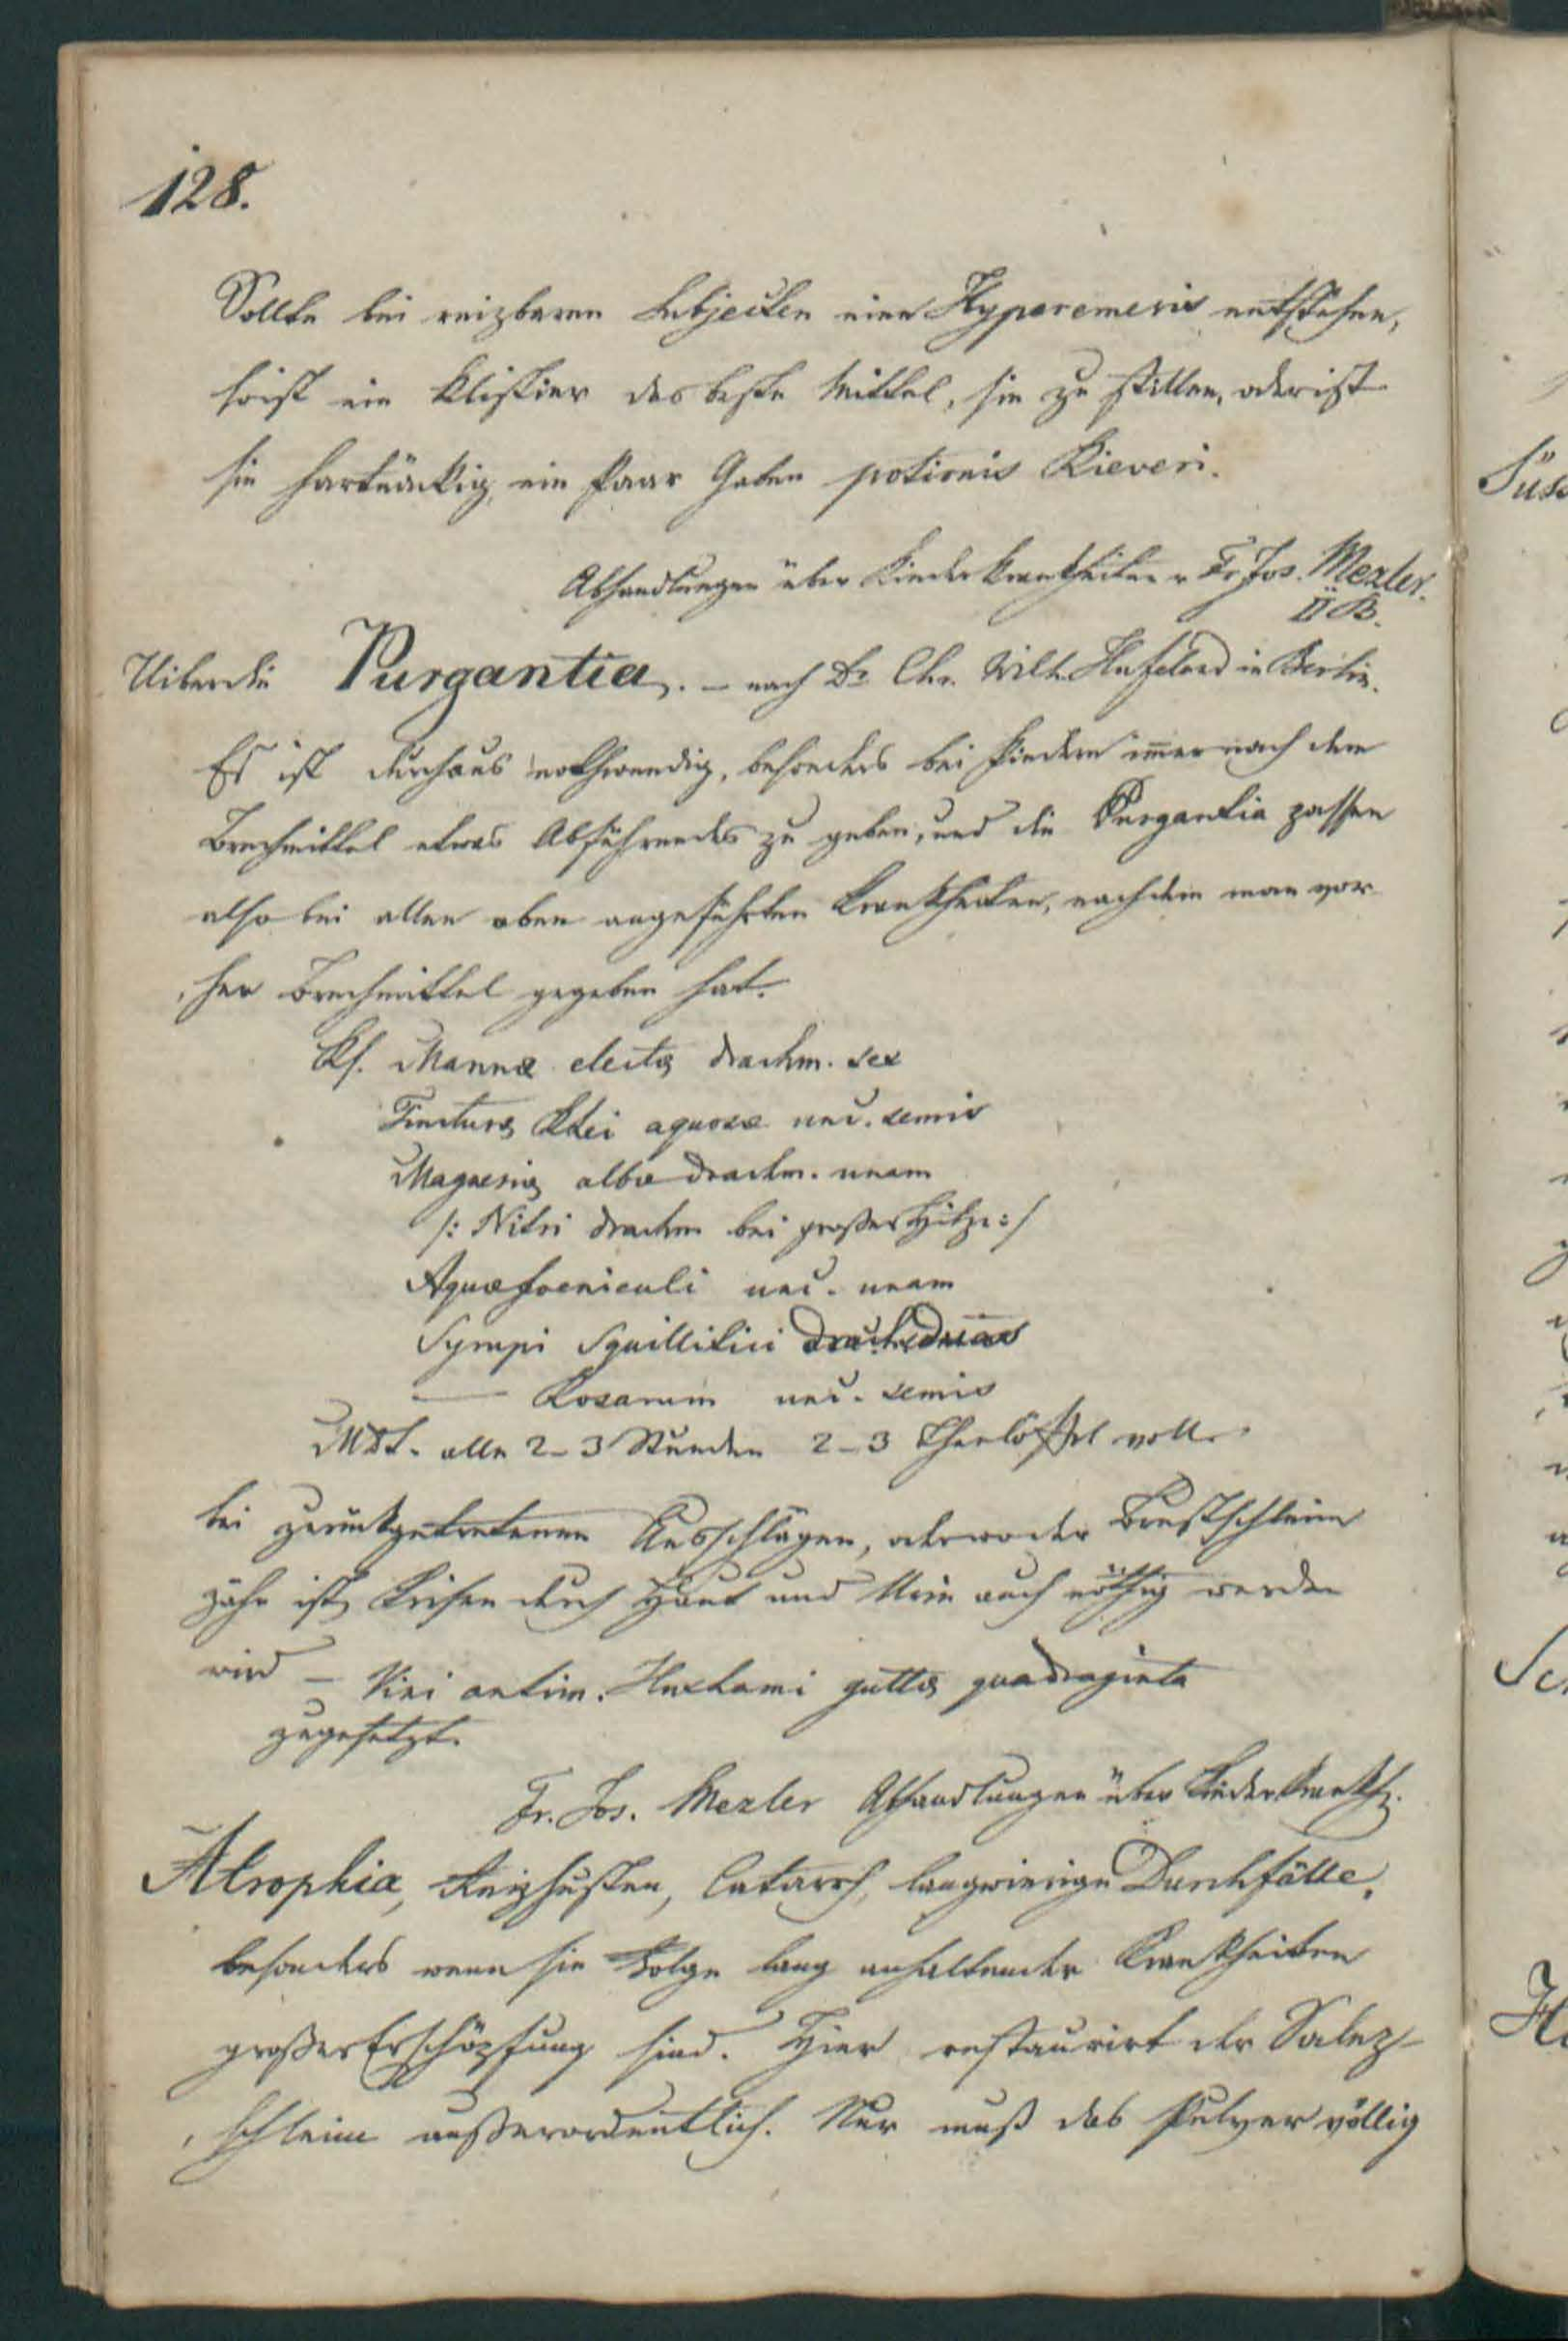 128.
Sollte bei reizbaren Subjecten eine Hyperemesis entstehen,
so ist ein Klistier das beste Mittel, sie zu stillen, oder ist
sie hartnäckig, ein Paar Gaben potionis Riveri.
Abhandlungen über Kinderkrankheiten v Fr Jos. Mezler.
II B.
Uiber die Purgantia. – nach Dr Chr. Wilh. Hufeland in Berlin.
Es ist durchaus nothwendig, besonders bei Kindern im̄er nach dem
Brechmittel etwas Abführendes zu geben, und die Purgantia passen
also bei allen oben angeführten Krankheiten, nachdem man vor
, her Brechmittel gegeben hat.
Rf. Mannæ electæ drachm. sex
Tincturæ Rhei aquosæ unc. semis
Magnesiæ albæ drachm. unam
/: Nitri drachm bei großer Hitze :/
Aquæ foeniculi unc. unam
Syrupi Squillitici drach. duas
—— Rosarum unc. semis
MDS. alle 2–3 Stunden 2–3 Theelöffel voll.
bei zurückgetretenen Ausschlägen, oder wo der Brustschleim
zähe ist, Krisen durch Haut und Urin auch nöthig werden
wird – Vini antim. Huxhami guttæ quadraginta
zugesetzt.
Fr. Jos. Mezler Abhandlungen über Kinderkrankh.
Atrophia, Reizhusten, Catarrh, langwierige Durchfälle,
besonders wenn sie Folge lang anhaltender Krankheiten
großer Erschöpfung sind. Hier restaurirt der Salez-
, schleim außerordentlich. Nur muß das Pulver völlig